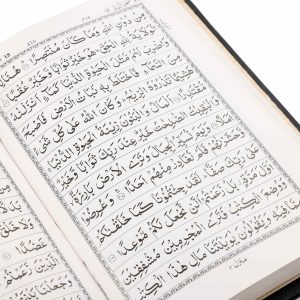 مِنْ دُوْنِ اللّٰهِ وَمَا كَانَ مُنْتَصِرًا هُنَالِكَ
الْوَلَايَةُ لِلّٰهِ الْحَقِّ هُوَ خَيْرٌ ثَوَابًا وَّخَيْرٌ عُقْبًا
وَاضْرِبْ لَهُمْ مَّثَلَ الْحَيٰوةِ الدُّنْيَا كَمَآءٍ اَنْزَلْنٰهُ
مِنَ السَّمَآءِ فَاخْتَلَطَ بِهٖ نَبَاتُ الْاَرْضِ فَاَصْبَحَ
هَشِيْمًا تَذْرُوْهُ الرِّيٰحُ وَكَانَ اللّٰهُ عَلٰى كُلِّ شَيْءٍ
مُّقْتَدِرًا اَلْمَالُ وَالْبَنُوْنَ زِيْنَةُ الْحَيٰوةِ الدُّنْيَا
وَالْبٰقِيٰتُ الصّٰلِحٰتُ خَيْرٌ عِنْدَ رَبِّكَ ثَوَابًا وَّخَيْرٌ
اَمَلًا وَيَوْمَ نُسَيِّرُ الْجِبَالَ وَتَرَى الْاَرْضَ بَارِزَةً
وَّحَشَرْنٰهُمْ فَلَمْ نُغَادِرْ مِنْهُمْ اَحَدًا وَعُرِضُوْا
عَلٰى رَبِّكَ صَفًّا لَقَدْ جِئْتُمُوْنَا كَمَا خَلَقْنٰكُمْ
اَوَّلَ مَرَّةٍ بَلْ زَعَمْتُمْ اَلَّنْ نَّجْعَلَ لَكُمْ مَّوْعِدًا
وَوُضِعَ الْكِتٰبُ فَتَرَى الْمُجْرِمِيْنَ مُشْفِقِيْنَ
مِمَّا فِيْهِ وَيَقُوْلُوْنَ يٰوَيْلَتَنَا مَالِ هٰذَا الْكِتٰبِ